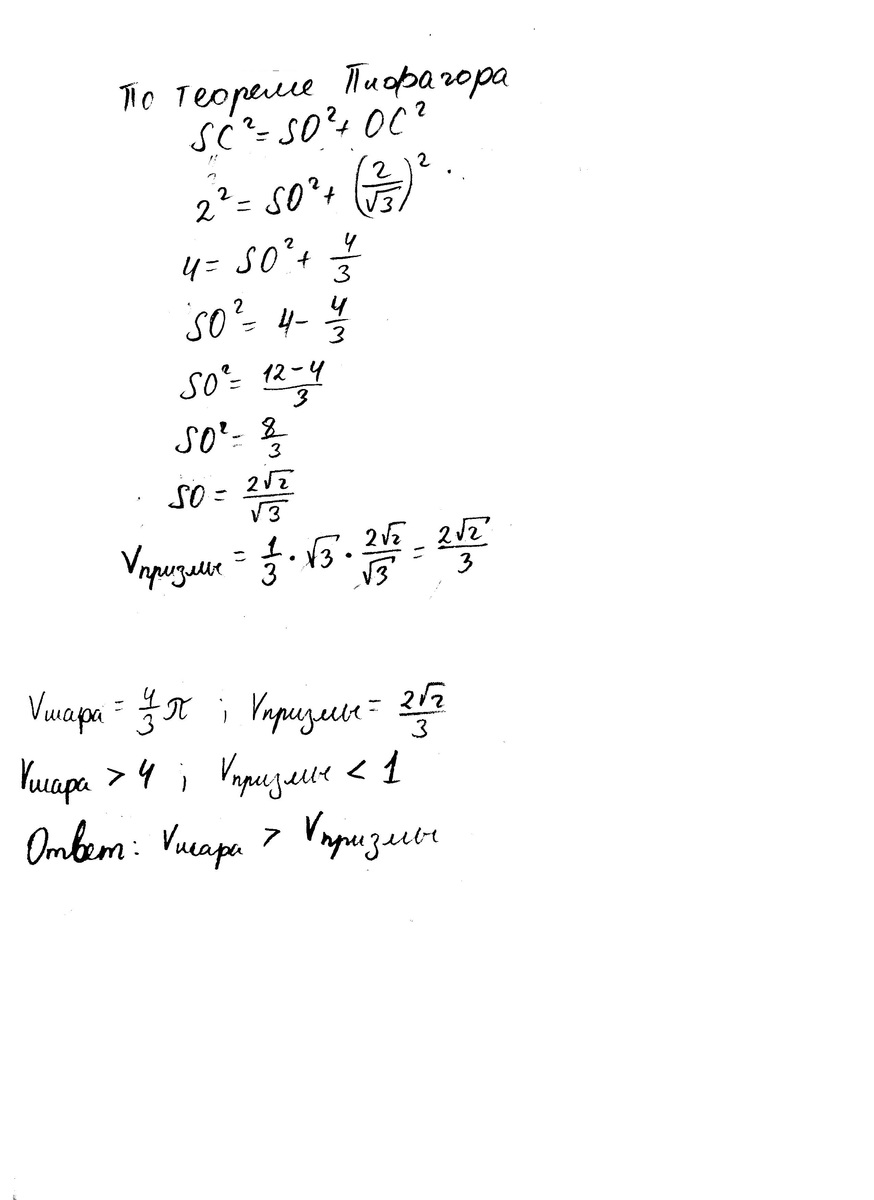 По теореме Пифагора
SC² = SO² + OC²
2² = SO² + (2/√3)²
4 = SO² + 4/3
SO² = 4 - 4/3
SO² = (12-4)/3
SO² = 8/3
SO = 2√2/√3
Vпризмы = 1/3 · √3 · 2√2/√3 = 2√2/3
Vшара = 4/3 π ; Vпризмы = 2√2/3
Vшара > 4 ; Vпризмы < 1
Ответ: Vшара > Vпризмы